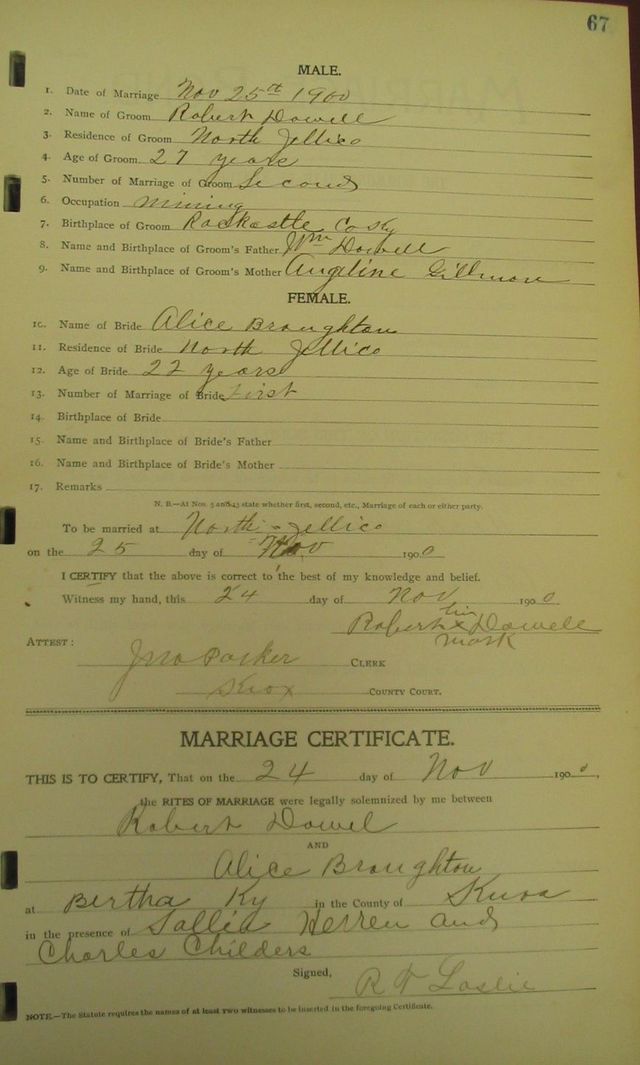 67
MALE.
1. Date of Marriage Nov 25th 1900
2. Name of Groom Robert Dowell
3. Residence of Groom North Jellico
4. Age of Groom 27 years
5. Number of Marriage of Groom Second
6. Occupation Mining
7. Birthplace of Groom Rockastle Co Ky
8. Name and Birthplace of Groom's Father Wm Dowell
9. Name and Birthplace of Groom's Mother Angeline Gillmore
FEMALE.
10. Name of Bride Alice Broughton
11. Residence of Bride North Jellico
12. Age of Bride 22 years
13. Number of Marriage of Bride First
14. Birthplace of Bride
15. Name and Birthplace of Bride's Father
16. Name and Birthplace of Bride's Mother
17. Remarks
N. B.—At Nos. 5 and 13 state whether first, second, etc., Marriage of each or either party.
To be married at North-Jellico
on the 25 day of Nov 1900
I CERTIFY that the above is correct to the best of my knowledge and belief.
Witness my hand, this 24 day of Nov 1900
Robert his x Dowell
mark
ATTEST:
Jno Parker CLERK
Knox COUNTY COURT.
MARRIAGE CERTIFICATE.
THIS IS TO CERTIFY, That on the 24 day of Nov 1900,
the RITES OF MARRIAGE were legally solemnized by me between
Robert Dowel
AND
Alice Broughton
at Bertha Ky in the County of Knox
in the presence of Sallie Herren and
Charles Childers
Signed,
R Leslie
NOTE.—The Statute requires the names of at least two witnesses to be inserted in the foregoing Certificate.